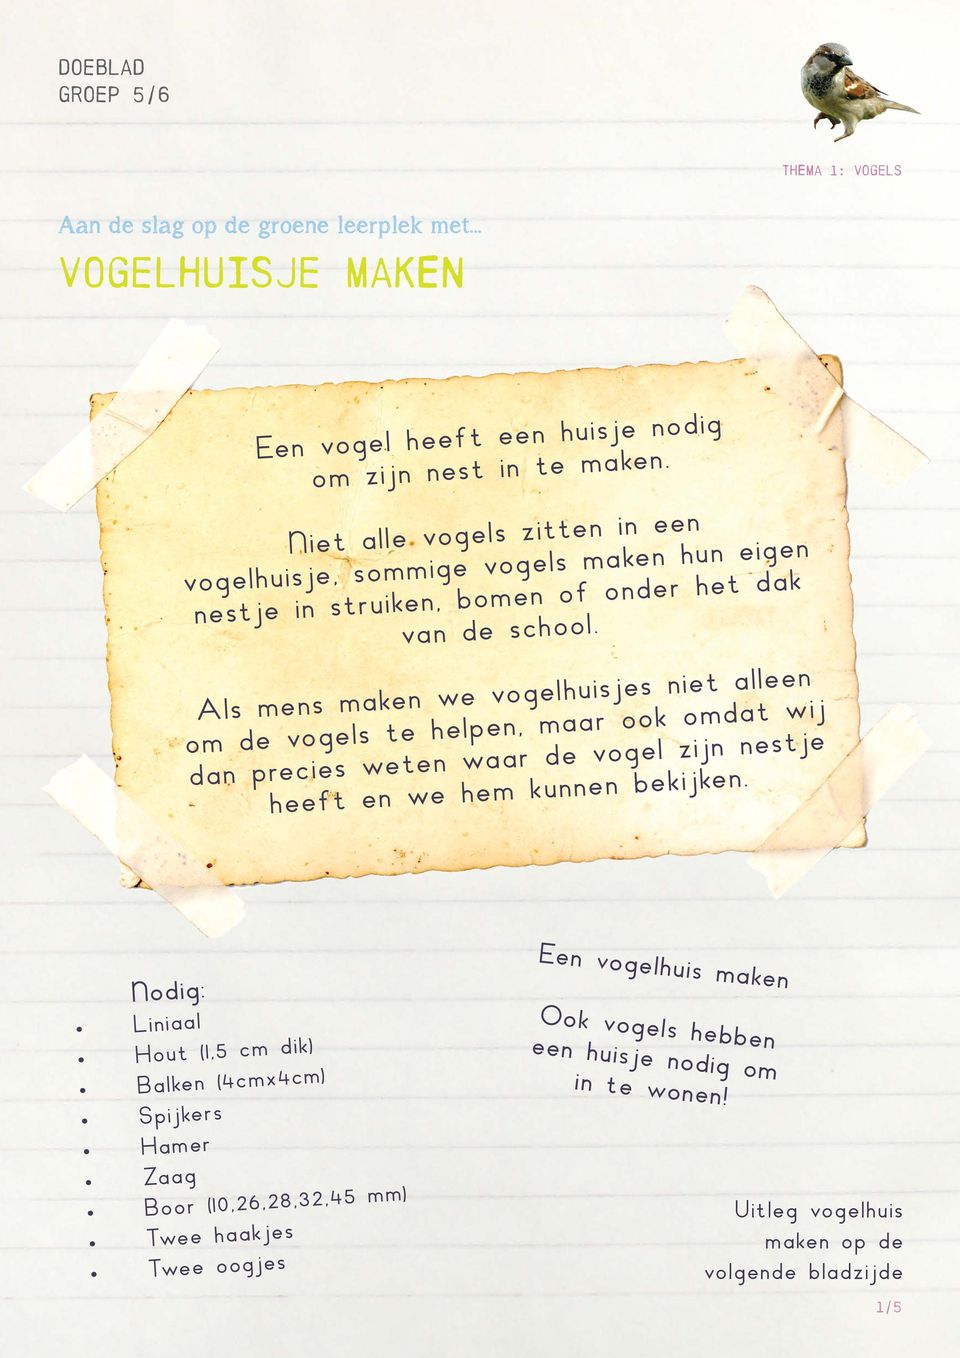 DOEBLAD
GROEP 5/6
THEMA 1: VOGELS
Aan de slag op de groene leerplek met...
VOGELHUISJE MAKEN
Een vogel heeft een huisje nodig
om zijn nest in te maken.
Niet alle vogels zitten in een
vogelhuisje, sommige vogels maken hun eigen
nestje in struiken, bomen of onder het dak
van de school.
Als mens maken we vogelhuisjes niet alleen
om de vogels te helpen, maar ook omdat wij
dan precies weten waar de vogel zijn nestje
heeft en we hem kunnen bekijken.
Nodig:
• Liniaal
• Hout (1,5 cm dik)
• Balken (4cmx4cm)
• Spijkers
• Hamer
• Zaag
• Boor (10,26,28,32,45 mm)
• Twee haakjes
• Twee oogjes
Een vogelhuis maken
Ook vogels hebben
een huisje nodig om
in te wonen!
Uitleg vogelhuis
maken op de
volgende bladzijde
1/5